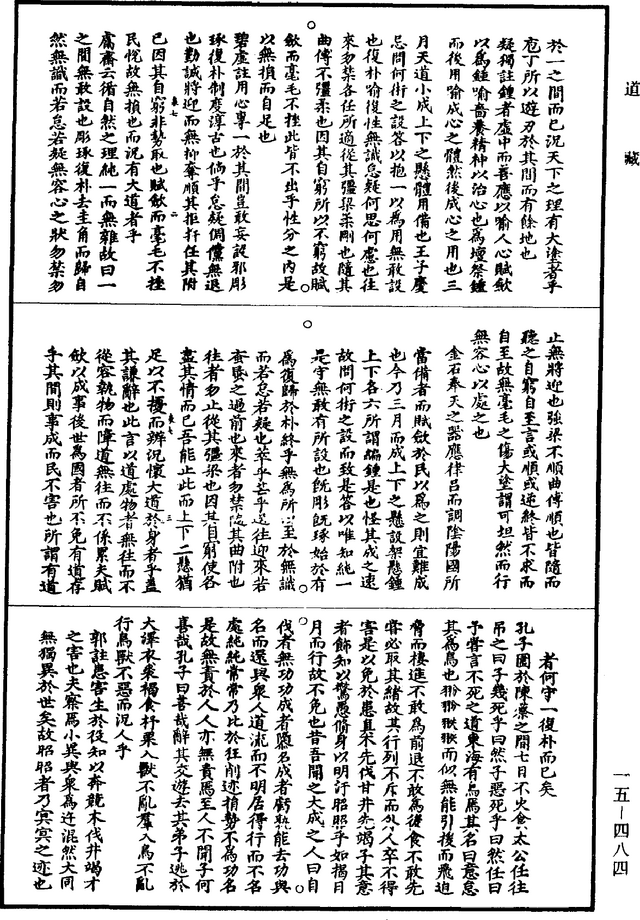 道藏
於一之間而已況天下之理有大塗者乎
庖丁所以遊刃於其間而有餘地也
疑獨註鍾者虛中而善應以喻人心賦斂
以為鍾喻嗇養精神以治心也為壇祭鍾
而後用喻成心之體然後成心之用也三
月天道小成上下之懸體用備也王子慶
忌問何術之設答以抱一以為用無敢設
也復朴喻復性無識怠疑何思何慮也往
來勿禁各任所適從其彊梁柔剛也隨其
曲傅不彊柔也因其自窮所以不窮故賦
斂而毫毛不挫此皆不出乎性分之內是
以無損而自足也
碧虛註用心專一於其間豈敢妄設邪彫
琢復朴制度淳古也倘乎怠疑倜儻無退
也勤誠將迎而無抑奪順其拒扞任其附
已因其自窮非勢取也賦斂而毫毛不挫
民悅故無損也而況有大道者乎
鬳齋云循自然之理純一而無雜故曰一
之間無敢設也彫琢復朴去圭角而歸自
然無識而若怠若疑無容心之狀勿禁勿
止無將迎也強梁不順曲傅順也皆隨而
聽之自窮自至言或順或逆終皆不求而
自至故無毫毛之傷大塗謂可坦然而行
無容心以處之也
金石奉天之器應律呂而調陰陽國所
當備者而賦斂於民以為之則宜難成
也今乃三月而成上下之懸設架懸鍾
上下各六所謂編鍾是也怪其成之速
故問何術之設而致是答以唯知純一
是守無敢有所設也既彫既琢始於有
為復歸於朴終乎無為所以至於無識
而若怠若疑也萃乎芒乎送往迎來若
蚉䖟之過前也來者勿禁隨其曲附也
往者勿止從其彊梁也因其自窮使各
盡其情而已吾能止此而上下二懸猶
足以不擾而辦況懷大道於身者乎蓋
其謙辭也此言以道處物者無往而不
從容執物而障道無往而不係累夫賦
斂以成事後世為國者所不免有道存
乎其間則事成而民不害也所謂有道
者何守一復朴而已矣
孔子圍於陳蔡之間七日不火食太公任往
吊之曰子幾死乎曰然子惡死乎曰然任曰
予嘗言不死之道東海有鳥焉其名曰意怠
其為鳥也翂翂翐翐而似無能引援而飛迫
脅而棲進不敢為前退不敢為後食不敢先
嘗必取其緒故其行列不斥而外人卒不得
害是以免於患直木先伐甘井先竭子其意
者飾知以驚愚脩身以明汙昭昭乎如揭日
月而行故不免也昔吾聞之大成之人曰自
伐者無功功成者墮名成者虧孰能去功與
名而還與眾人道流而不明居得行而不名
處純純常常乃比於狂削迹捐勢不為功名
是故無責於人人亦無責焉至人不聞子何
喜哉孔子曰善哉辭其交遊去其弟子逃於
大澤衣裘褐食杼栗入獸不亂群入鳥不亂
行鳥獸不惡而況人乎
郭註患害生於役知以奔競木伐井竭才
之害也夫察焉小異與眾為迕混然大同
無獨異於世矣故昭昭者乃冥冥之迹也
一五―四八四